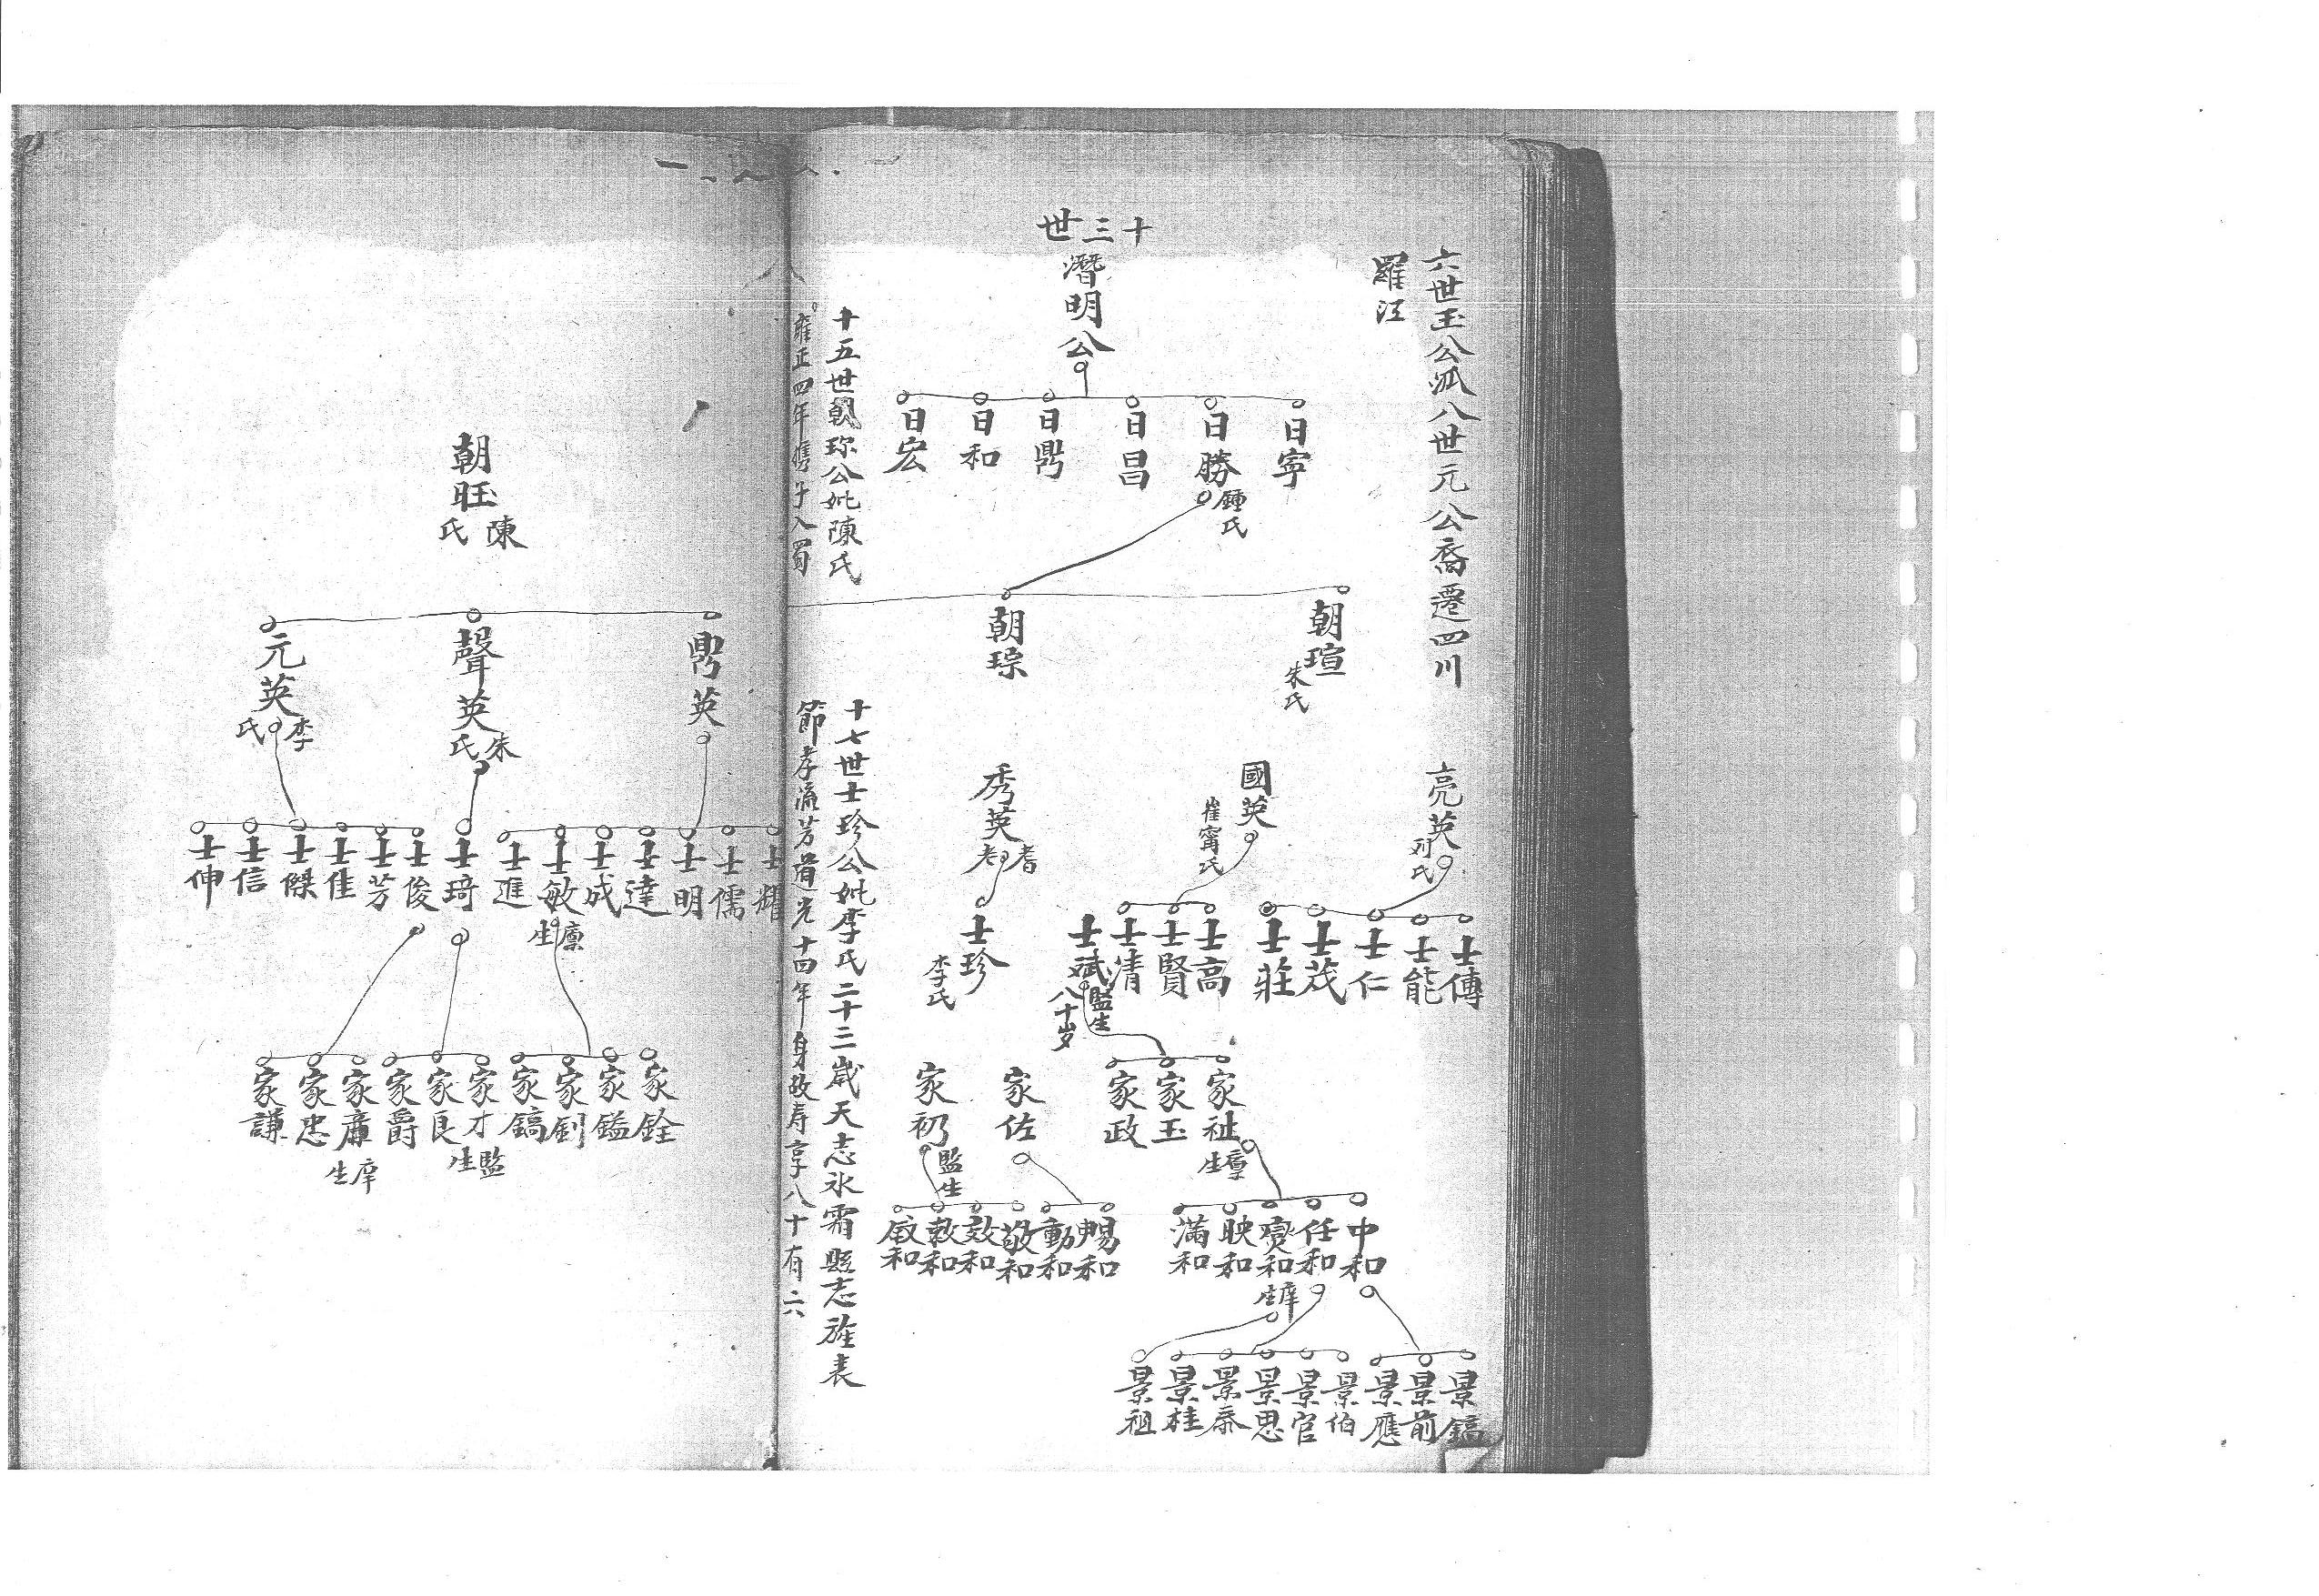 六世玉公派八世元公裔遷四川
羅江
十三世
潛明公
日寧
日勝
鍾氏
日昌
日鼎
日和
日宏
朝瑄
朱氏
朝琮
十五世朝琮公妣陳氏
雍正四年携子入蜀
亮英
鄧氏
國英
崔甯氏
秀英
耆老
士傳
士能
士仁
士茂
士莊
士高
士賢
士清
士斌
監生
八十岁
士珍
李氏
十七世士珍公妣李氏二十二歲夭志氷霜縣志旌表
節孝流芳道光十四年身故寿享八十有六
家祉
廩生
家玉
家政
家佐
家初
監生
中和
任和
燮和
庠生
映和
滿和
暢和
動和
敬和
效和
敦和
啟和
景鎬
景前
景應
景伯
景官
景思
景泰
景桂
景祖
朝旺
陳氏
鼎英
聲英
朱氏
元英
李氏
士耀
士儒
士明
士達
士成
士敏
廩生
士進
士琦
士俊
士芳
士佳
士傑
士信
士伸
家銓
家鎰
家釗
家鎬
家才
監生
家良
家爵
家廉
庠生
家忠
家謙